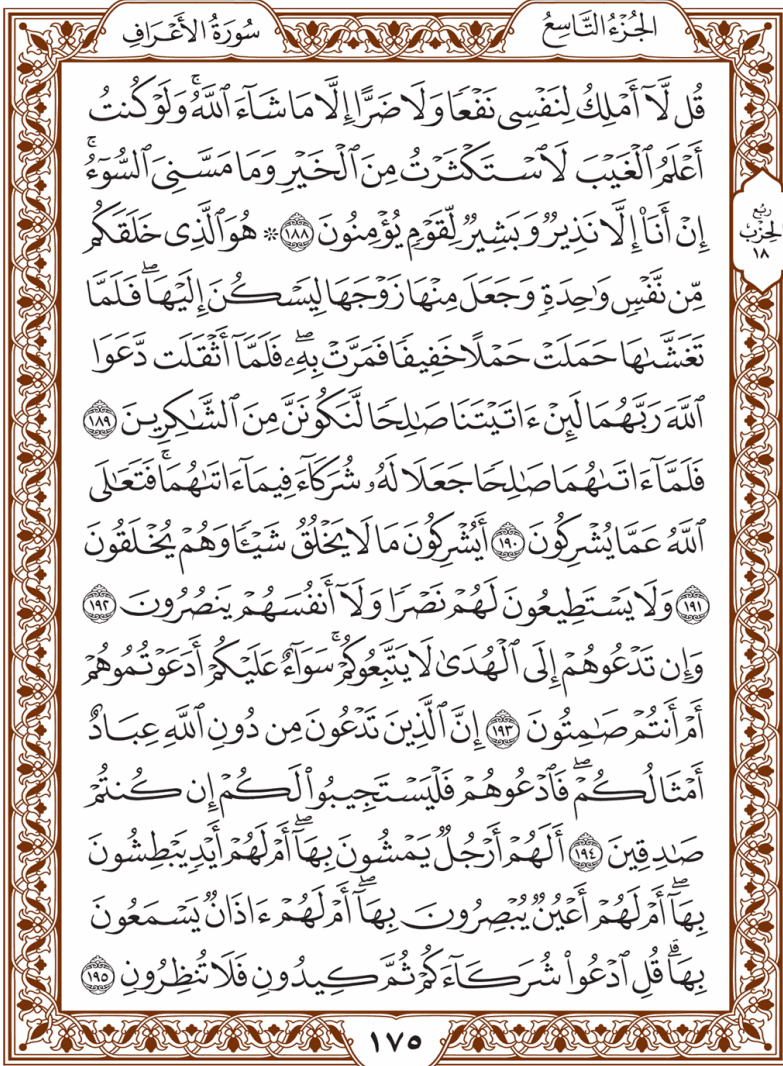 الجُزْءُ التَّاسِعُ
سُورَةُ الأَعْرَافِ
قُل لَّآ أَمْلِكُ لِنَفْسِى نَفْعًا وَلَا ضَرًّا إِلَّا مَا شَآءَ ٱللَّهُۚ وَلَوْ كُنتُ
أَعْلَمُ ٱلْغَيْبَ لَٱسْتَكْثَرْتُ مِنَ ٱلْخَيْرِ وَمَا مَسَّنِىَ ٱلسُّوٓءُۚ
إِنْ أَنَا۠ إِلَّا نَذِيرٌ وَبَشِيرٌ لِّقَوْمٍ يُؤْمِنُونَ ١٨٨ ۞ هُوَ ٱلَّذِى خَلَقَكُم
مِّن نَّفْسٍ وَٰحِدَةٍ وَجَعَلَ مِنْهَا زَوْجَهَا لِيَسْكُنَ إِلَيْهَاۖ فَلَمَّا
تَغَشَّىٰهَا حَمَلَتْ حَمْلًا خَفِيفًا فَمَرَّتْ بِهِۦۖ فَلَمَّآ أَثْقَلَت دَّعَوَا
ٱللَّهَ رَبَّهُمَا لَئِنْ ءَاتَيْتَنَا صَٰلِحًا لَّنَكُونَنَّ مِنَ ٱلشَّٰكِرِينَ ١٨٩
فَلَمَّآ ءَاتَىٰهُمَا صَٰلِحًا جَعَلَا لَهُۥ شُرَكَآءَ فِيمَآ ءَاتَىٰهُمَاۚ فَتَعَٰلَى
ٱللَّهُ عَمَّا يُشْرِكُونَ ١٩٠ أَيُشْرِكُونَ مَا لَا يَخْلُقُ شَيْـًٔا وَهُمْ يُخْلَقُونَ
١٩١ وَلَا يَسْتَطِيعُونَ لَهُمْ نَصْرًا وَلَآ أَنفُسَهُمْ يَنصُرُونَ ١٩٢
وَإِن تَدْعُوهُمْ إِلَى ٱلْهُدَىٰ لَا يَتَّبِعُوكُمْۚ سَوَآءٌ عَلَيْكُمْ أَدَعَوْتُمُوهُمْ
أَمْ أَنتُمْ صَٰمِتُونَ ١٩٣ إِنَّ ٱلَّذِينَ تَدْعُونَ مِن دُونِ ٱللَّهِ عِبَادٌ
أَمْثَالُكُمْۖ فَٱدْعُوهُمْ فَلْيَسْتَجِيبُوا۟ لَكُمْ إِن كُنتُمْ
صَٰدِقِينَ ١٩٤ أَلَهُمْ أَرْجُلٌ يَمْشُونَ بِهَآۖ أَمْ لَهُمْ أَيْدٍ يَبْطِشُونَ
بِهَآۖ أَمْ لَهُمْ أَعْيُنٌ يُبْصِرُونَ بِهَآۖ أَمْ لَهُمْ ءَاذَانٌ يَسْمَعُونَ
بِهَاۗ قُلِ ٱدْعُوا۟ شُرَكَآءَكُمْ ثُمَّ كِيدُونِ فَلَا تُنظِرُونِ ١٩٥
رُبْعُ
الحِزْب
١٨
١٧٥